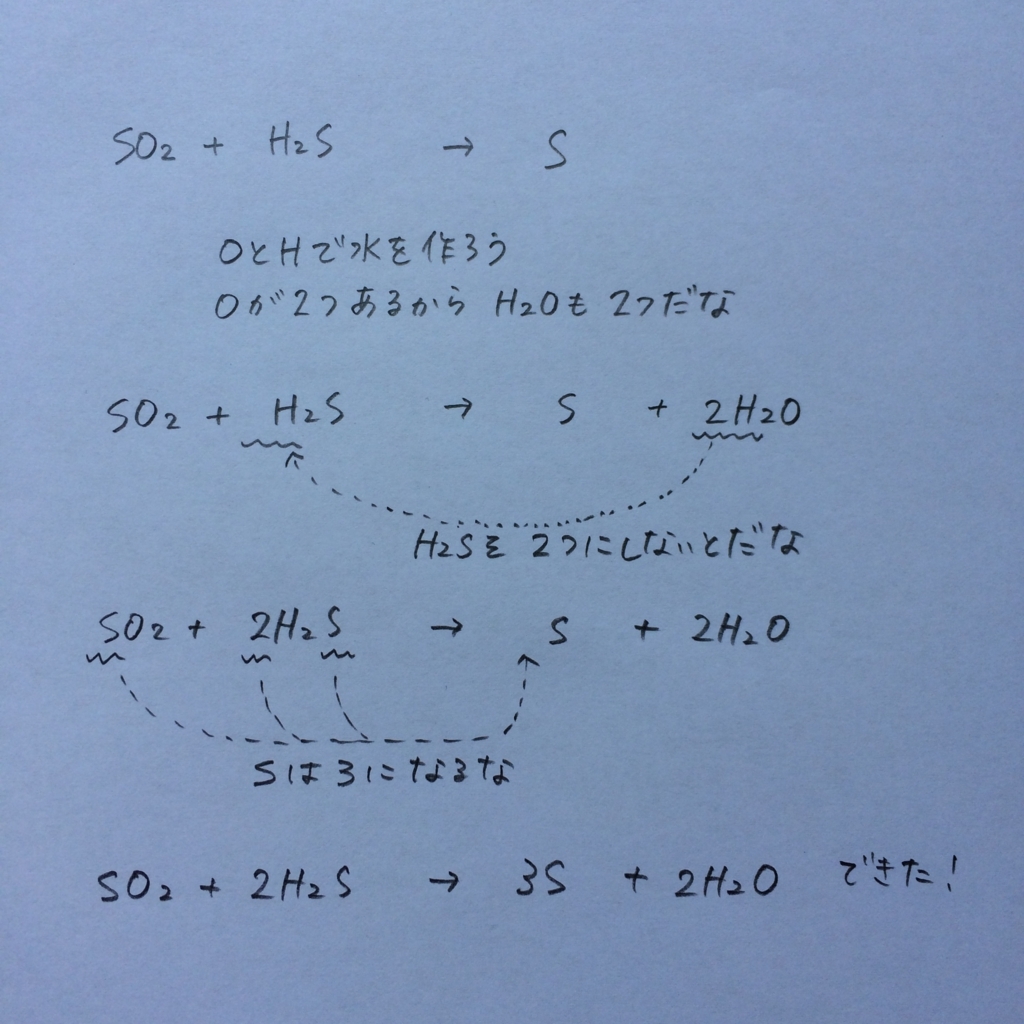 SO₂ + H₂S → S
OとHで水を作ろう
Oが2つあるから H₂Oも 2つだな
SO₂ + H₂S → S + 2H₂O
H₂Sを 2つにしないとだな
SO₂ + 2H₂S → S + 2H₂O
Sは3になるな
SO₂ + 2H₂S → 3S + 2H₂O できた!